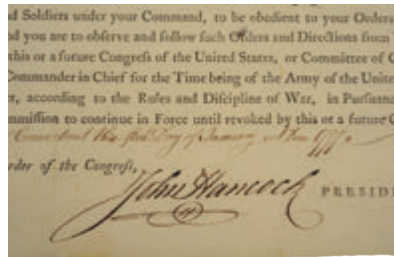 d Soldiers under your Command, to be obedient to your Orders
d you are to observe and follow such Orders and Directions from
this or a future Congreſs of the United States, or Committee of C
Commander in Chief for the Time being of the Army of the Unite
r, according to the Rules and Diſcipline of War, in Purſuan
mmiſſion to continue in Force until revoked by this or a future C
this Day of January
rder of the Congreſs,
John Hancock PRESID